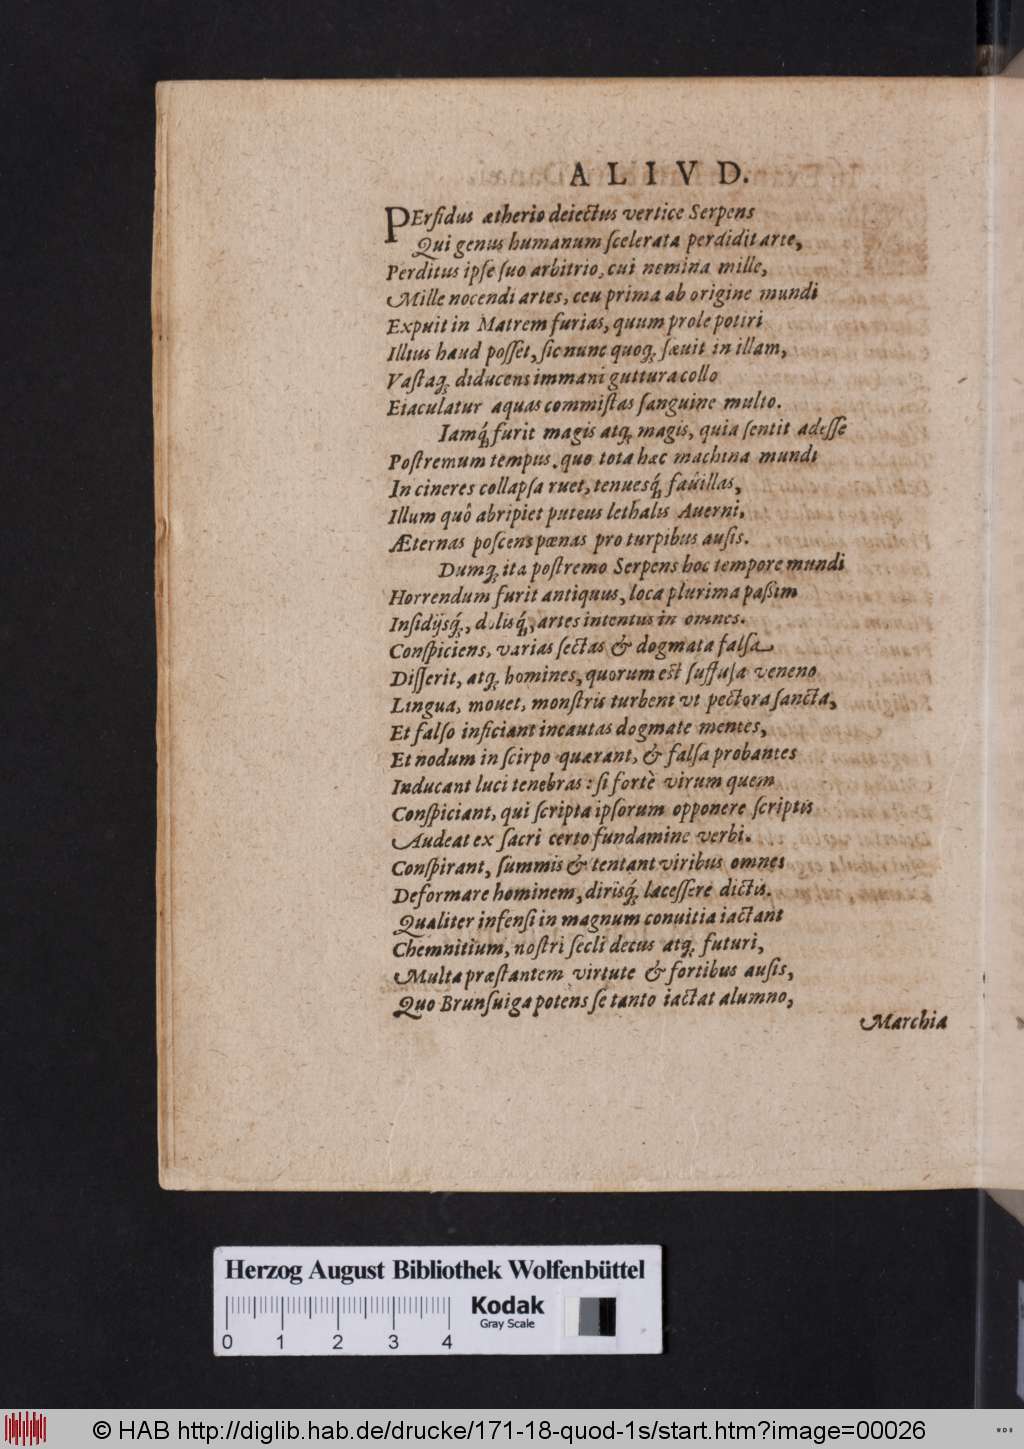 ALIVD.
PErfidus ætherio deiectus vertice Serpens
Qui genus humanum ſcelerata perdidit arte,
Perditus ipſe ſuo arbitrio, cui nemina mille,
Mille nocendi artes, ceu prima ab origine mundi
Expuit in Matrem furias, quum prole potiri
Illius haud poſſet, ſic nunc quoq; ſæuit in illam,
Vaſtaq; diducens immani guttura collo
Eiaculatur aquas commiſtas ſanguine multo.
Iamq́; furit magis atq; magis, quia ſentit adeſſe
Poſtremum tempus, quo tota hæc machina mundi
In cineres collapſa ruet, tenuesq́; fauillas,
Illum quô abripiet puteus lethalis Auerni,
Æternas poſcens pœnas pro turpibus auſis.
Dumq; ita poſtremo Serpens hoc tempore mundi
Horrendum furit antiquus, loca plurima paßim
Inſidijsq́;, dolisq́;, artes intentus in omnes.
Conſpiciens, varias ſectas & dogmata falſa
Diſſerit, atq; homines, quorum est ſuffuſa veneno
Lingua, mouet, monſtris turbent vt pectora ſancta,
Et falſo inficiant incautas dogmate mentes,
Et nodum in ſcirpo quærant, & falſa probantes
Inducant luci tenebras: ſi fortè virum quem
Conſpiciant, qui ſcripta ipſorum opponere ſcriptis
Audeat ex ſacri certo fundamine verbi.
Conſpirant, ſummis & tentant viribus omnes
Deformare hominem, dirisq́; laceſſere dictis.
Qualiter infenſi in magnum conuitia iactant
Chemnitium, noſtri ſecli decus atq; futuri,
Multa præſtantem virtute & fortibus auſis,
Quo Brunſuiga potens ſe tanto iactat alumno,
Marchia
Herzog August Bibliothek Wolfenbüttel
0 1 2 3 4
Kodak
Gray Scale
© HAB http://diglib.hab.de/drucke/171-18-quod-1s/start.htm?image=00026